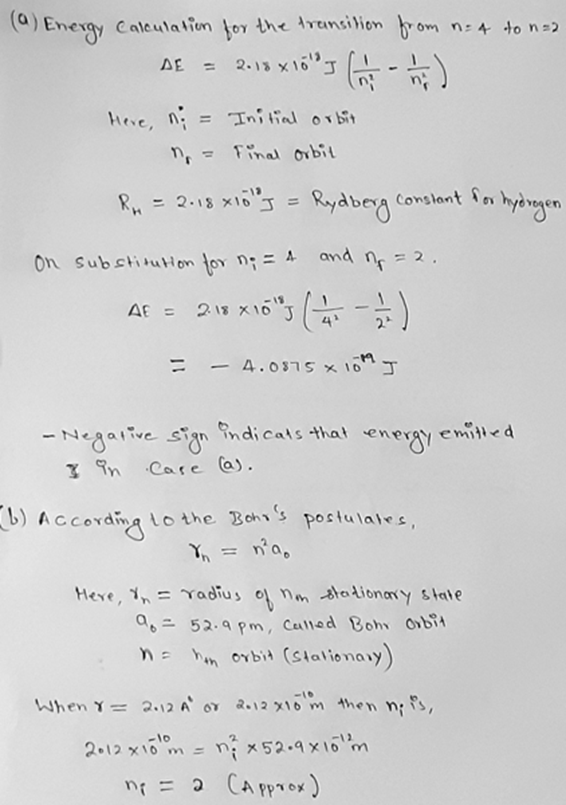 (a) Energy Calculation for the transition from n=4 to n=2
ΔE = 2.18 × 10⁻¹⁸ J (1/nᵢ² - 1/n_f²)
Here, nᵢ = Initial orbit
n_f = Final orbit
R_H = 2.18 × 10⁻¹⁸ J = Rydberg constant for hydrogen
On substitution for nᵢ = 4 and n_f = 2.
ΔE = 2.18 × 10⁻¹⁸ J (1/4² - 1/2²)
= - 4.0875 × 10⁻¹⁹ J
- Negative sign indicats that energy emitted
in Case (a).
(b) According to the Bohr's postulates,
rₙ = n²a₀
Here, rₙ = radius of nth stationary state
a₀ = 52.9 pm, Called Bohr orbit
n = nth orbit (Stationary)
When r = 2.12 A° or 2.12 × 10⁻¹⁰ m then nᵢ is,
2.12 × 10⁻¹⁰ m = nᵢ² × 52.9 × 10⁻¹² m
nᵢ = 2 (Approx)